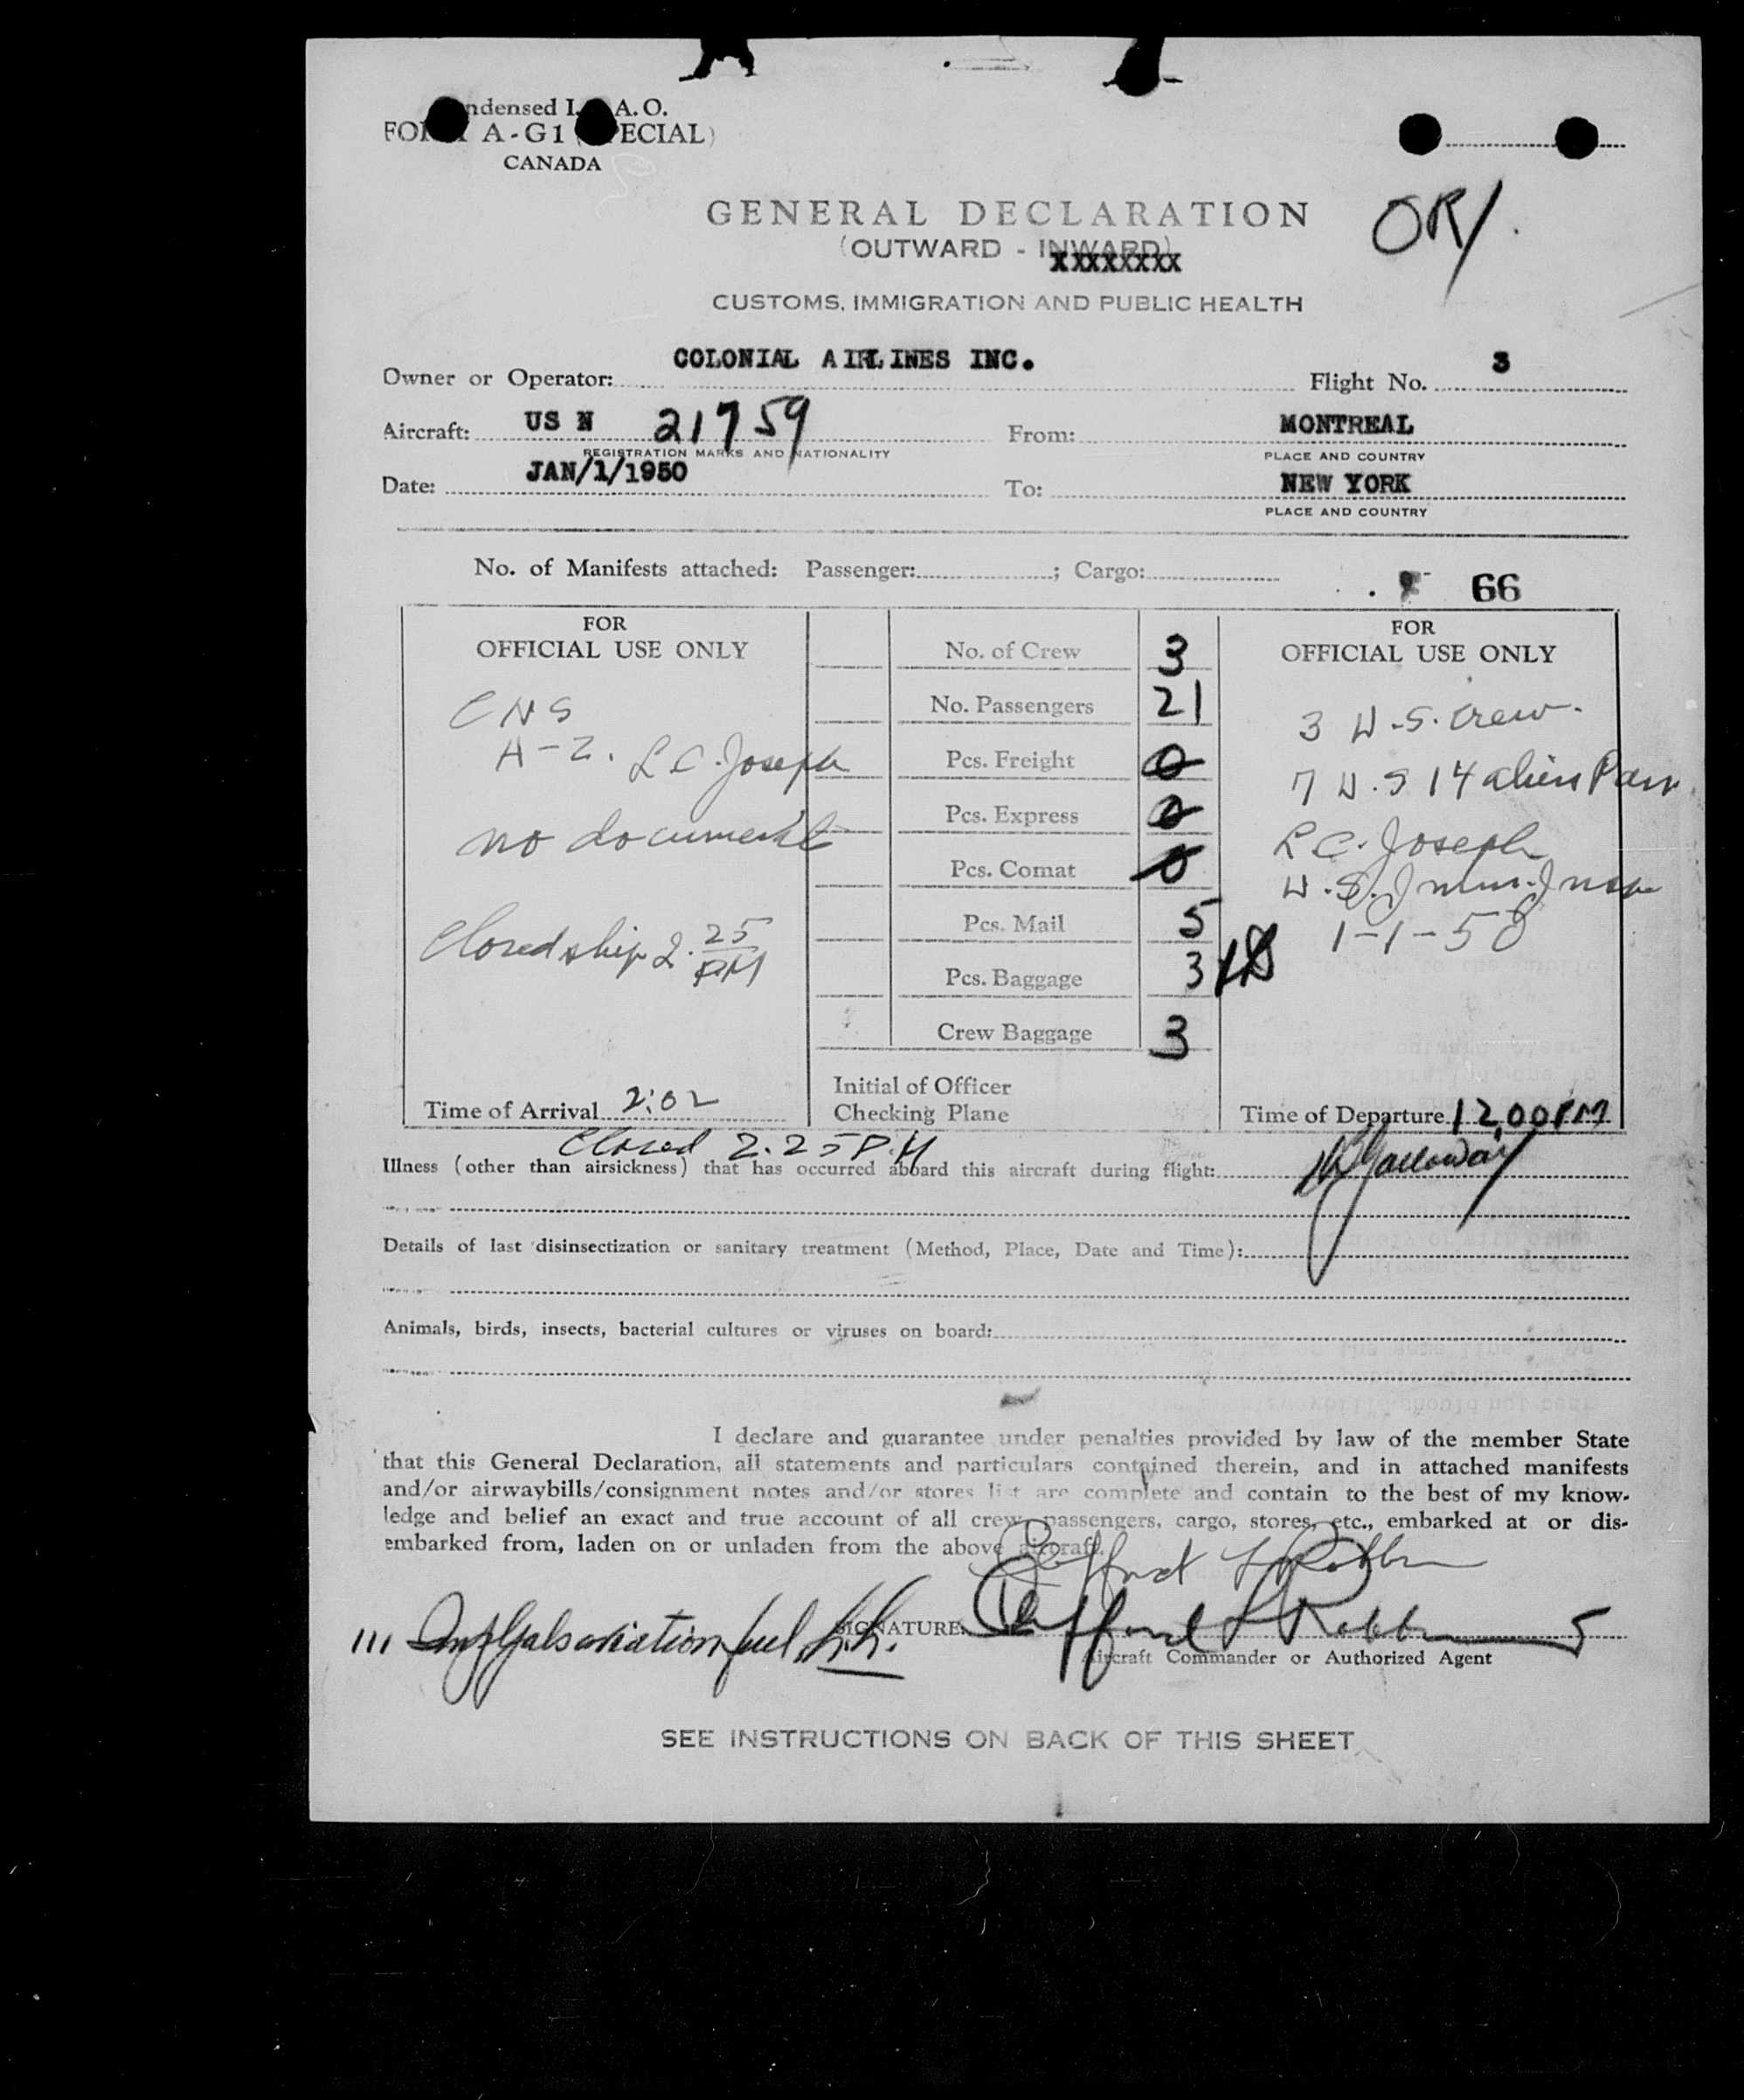 ndensed I. A.O.
FO A-G1 ( ECIAL)
CANADA
GENERAL DECLARATION
ORI.
(OUTWARD - INWARD)
XXXXXXXX
CUSTOMS, IMMIGRATION AND PUBLIC HEALTH
Owner or Operator: COLONIAL AIRLINES INC. Flight No. 3
Aircraft: US N 21759 From: MONTREAL
REGISTRATION MARKS AND NATIONALITY PLACE AND COUNTRY
Date: JAN/1/1950 To: NEW YORK
PLACE AND COUNTRY
No. of Manifests attached: Passenger: ; Cargo:
66
FOR
OFFICIAL USE ONLY
CNS
A-Z. L C. Joseph
no documents
Closed ship 2.25 PM
Time of Arrival 2:02
No. of Crew 3
No. Passengers 21
Pcs. Freight 0
Pcs. Express 0
Pcs. Comat 0
Pcs. Mail 5
Pcs. Baggage 3
Crew Baggage 3
Initial of Officer
Checking Plane
FOR
OFFICIAL USE ONLY
3 U.S. Crew.
7 U.S 14 aliens Pass
L C. Joseph
U.S. Imm. Insp
1-1-50
Time of Departure 12,00PM
Closed 2.25 P.M
Illness (other than airsickness) that has occurred aboard this aircraft during flight: Galloway
Details of last disinsectization or sanitary treatment (Method, Place, Date and Time):
Animals, birds, insects, bacterial cultures or viruses on board:
I declare and guarantee under penalties provided by law of the member State
that this General Declaration, all statements and particulars contained therein, and in attached manifests
and/or airwaybills/consignment notes and/or stores list are complete and contain to the best of my know-
ledge and belief an exact and true account of all crew, passengers, cargo, stores, etc., embarked at or dis-
embarked from, laden on or unladen from the above aircraft.
Clifford L Robbins
111 Imp Gals aviation fuel SIGNATURE: Clifford L Robbins
Aircraft Commander or Authorized Agent
SEE INSTRUCTIONS ON BACK OF THIS SHEET